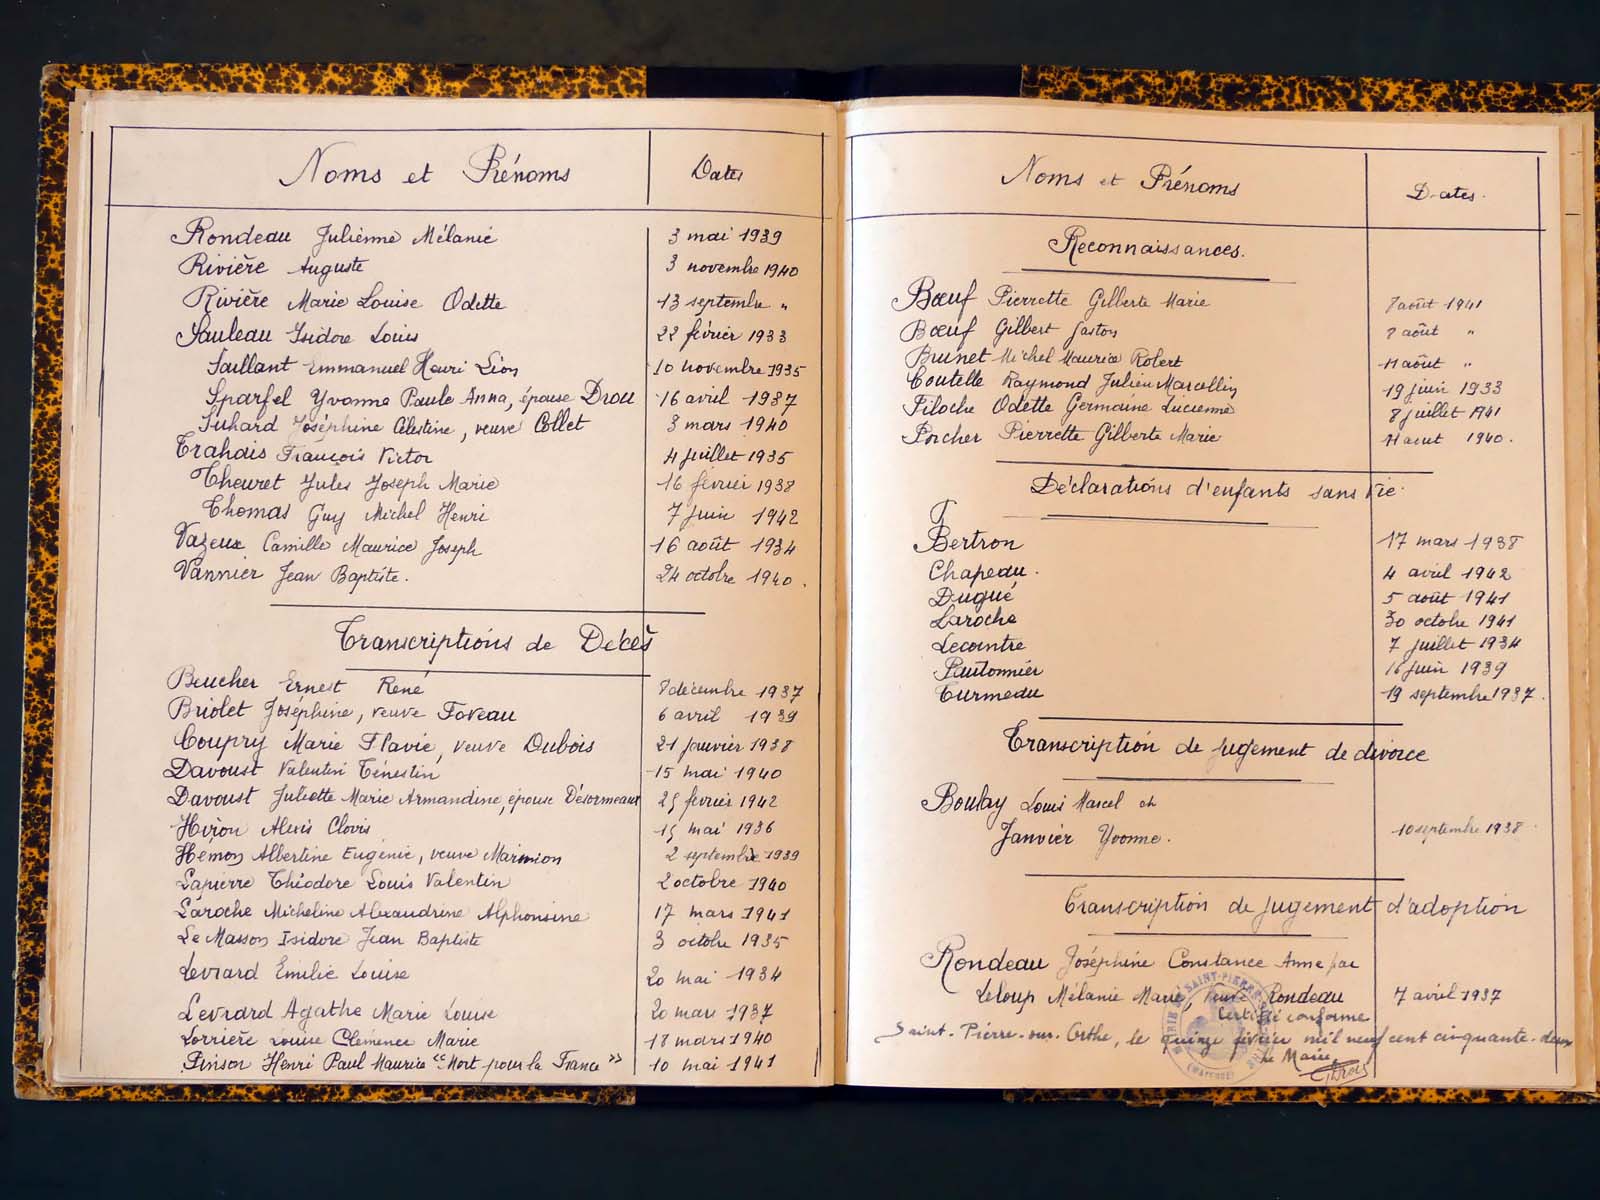 Noms et Prénoms Dates
Rondeau Julienne Mélanie 3 mai 1939
Rivière Auguste 3 novembre 1940
Rivière Marie Louise Odette 13 septembre "
Sauleau Isidore Louis 22 février 1933
Saillant Emmanuel Henri Léon 10 novembre 1935
Sparfel Yvonne Paule Anna, épouse Drou 16 avril 1937
Suhard Joséphine Célestine, veuve Collet 3 mars 1940
Trahais François Victor 4 juillet 1935
Theuret Jules Joseph Marie 16 février 1938
Thomas Guy Michel Henri 7 juin 1942
Vazeux Camille Maurice Joseph 16 août 1934
Vannier Jean Baptiste. 24 octobre 1940.
Transcriptions de Décès
Beucher Ernest René 8 décembre 1937
Briolet Joséphine, veuve Foveau 6 avril 1939
Coupry Marie Flavie, veuve Dubois 21 janvier 1938
Davoust Valentin Ténestin 15 mai 1940
Davoust Juliette Marie Armandine, épouse Désormeaux 25 février 1942
Hiron Alexis Clovis 15 mai 1936
Hémon Albertine Eugénie, veuve Marmion 2 septembre 1939
Lapierre Théodore Louis Valentin 2 octobre 1940
Laroche Micheline Alexandrine Alphonsine 17 mars 1941
Le Masson Isidore Jean Baptiste 3 octobre 1935
Levrard Emilie Louise 20 mai 1934
Levrard Agathe Marie Louise 20 mars 1937
Lorrière Louise Clémence Marie 18 mars 1940
Pinson Henri Paul Maurice "Mort pour la France" 10 mai 1941
Noms et Prénoms Dates.
Reconnaissances.
Bœuf Pierrette Gilberte Marie août 1941
Bœuf Gilbert Gaston août "
Brunet Michel Maurice Robert 11 août "
Coutelle Raymond Julien Marcellin 19 juin 1933
Filoche Odette Germaine Lucienne 8 juillet 1941
Porcher Pierrette Gilberte Marie 11 aout 1940.
Déclarations d'enfants sans vie.
Bertron 17 mars 1938
Chapeau. 4 avril 1942
Dugué 5 août 1941
Laroche 30 octobre 1941
Lecointre 7 juillet 1934
Pautonnier 16 juin 1939
Turmeau 19 septembre 1937.
Transcription de jugement de divorce
Boulay Louis Marcel et
Janvier Yvonne. 10 septembre 1938.
Transcription de jugement d'adoption
Rondeau Joséphine Constance Anne par
Leloup Mélanie Marie, veuve Rondeau 7 avril 1937
Certifié conforme
Saint-Pierre-sur-Orthe, le quinze février mil neuf cent cinquante-deux
Le Maire,
MAIRIE SAINT-PIERRE-SUR-ORTHE (MAYENNE)